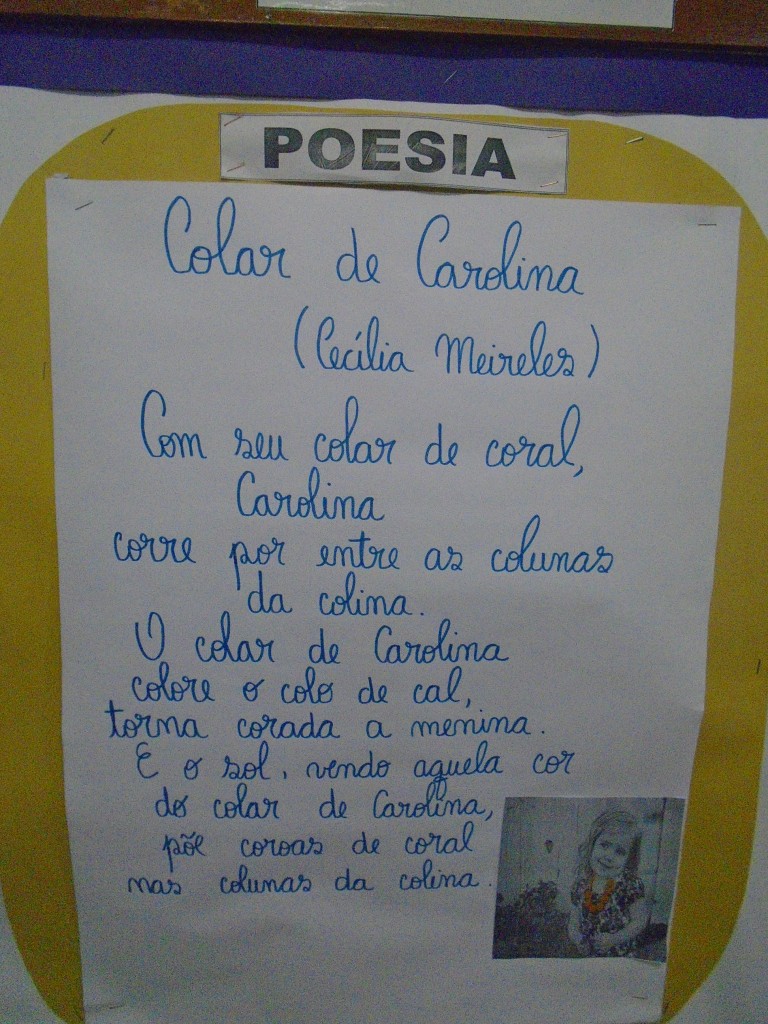 POESIA
Colar de Carolina
(Cecília Meireles)
Com seu colar de coral,
Carolina
corre por entre as colunas
da colina.
O colar de Carolina
colore o colo de cal,
torna corada a menina.
E o sol, vendo aquela cor
do colar de Carolina,
põe coroas de coral
nas colunas da colina.